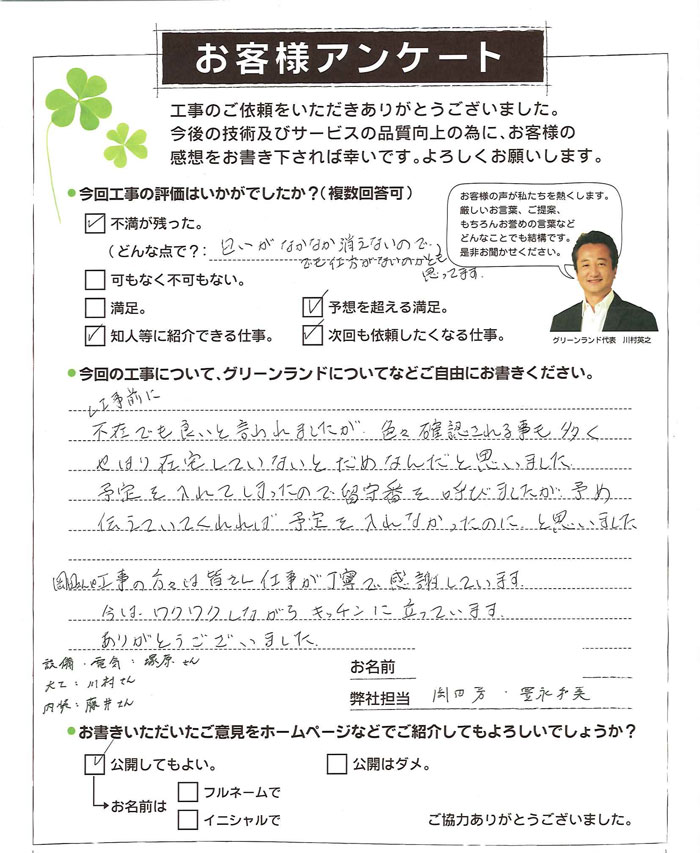 お客様アンケート
工事のご依頼をいただきありがとうございました。
今後の技術及びサービスの品質向上の為に、お客様の
感想をお書き下されば幸いです。よろしくお願いします。
今回工事の評価はいかがでしたか?(複数回答可)
不満が残った。
(どんな点で?: 臭いがなかなか消えないので、
でも仕方がないのかとも
思ってます。
可もなく不可もない。
満足。
予想を超える満足。
知人等に紹介できる仕事。
次回も依頼したくなる仕事。
お客様の声が私たちを熱くします。
厳しいお言葉、ご提案、
もちろんお誉めの言葉など
どんなことでも結構です。
是非お聞かせください。
グリーンランド代表 川村英之
今回の工事について、グリーンランドについてなどご自由にお書きください。
工事前に
不在でも良いと言われましたが、色々確認される事も多く
やはり在宅していないとだめなんだと思いました
予定を入れてしまったので留守番を呼びましたが予め
伝えていてくれれば予定を入れなかったのに。と思いました
岡田さんや工事の方々は皆さん仕事が丁寧で感謝しています。
今は、ワクワクしながらキッチンに立っています。
ありがとうございました。
設備・電気:塚原さん
大工:川村さん
内装:藤井さん
お名前
弊社担当 岡田芳・
お書きいただいたご意見をホームページなどでご紹介してもよろしいでしょうか?
公開してもよい。
公開はダメ。
お名前は
フルネームで
イニシャルで
ご協力ありがとうございました。